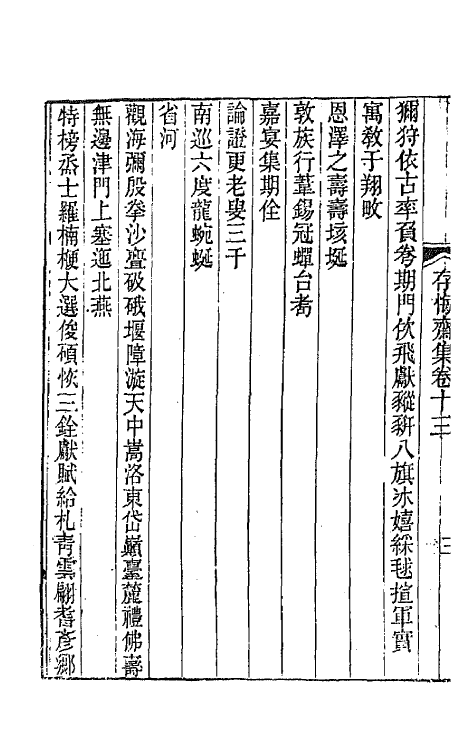 存悔齋集卷十三
三
獮狩依古率負劵期門佽飛獻豵豜八旗冰嬉綵毬揎軍實
寓敎于翔畋
恩澤之壽壽垓埏
敦族行葦錫冠蟬台耈
嘉宴集期佺
論證更老叟三千
南巡六度龍蜿蜒
省河
觀海彌殷拳沙亹破碔堰障漩天中嵩洛東岱巔臺麓禮佛壽
無邊津門上塞迤北燕
特榜烝士羅楠楩大選俊碩恢三銓獻賦給札靑雲翩耆彥鄉